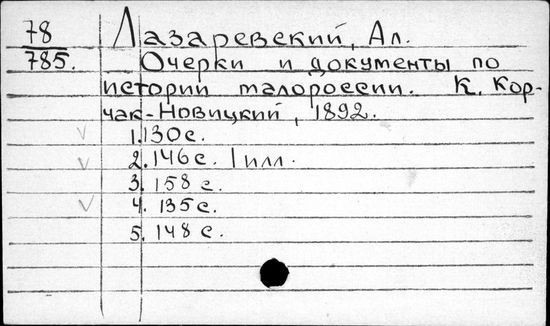 78
785.
Лазаревский, Ал.
Очерки и документы по
истории малороссии. К. Кор-
чак-Новицкий, 1892.
1. 130 с.
2. 146 с. 1 илл.
3. 158 с.
4. 135 с.
5. 148 с.